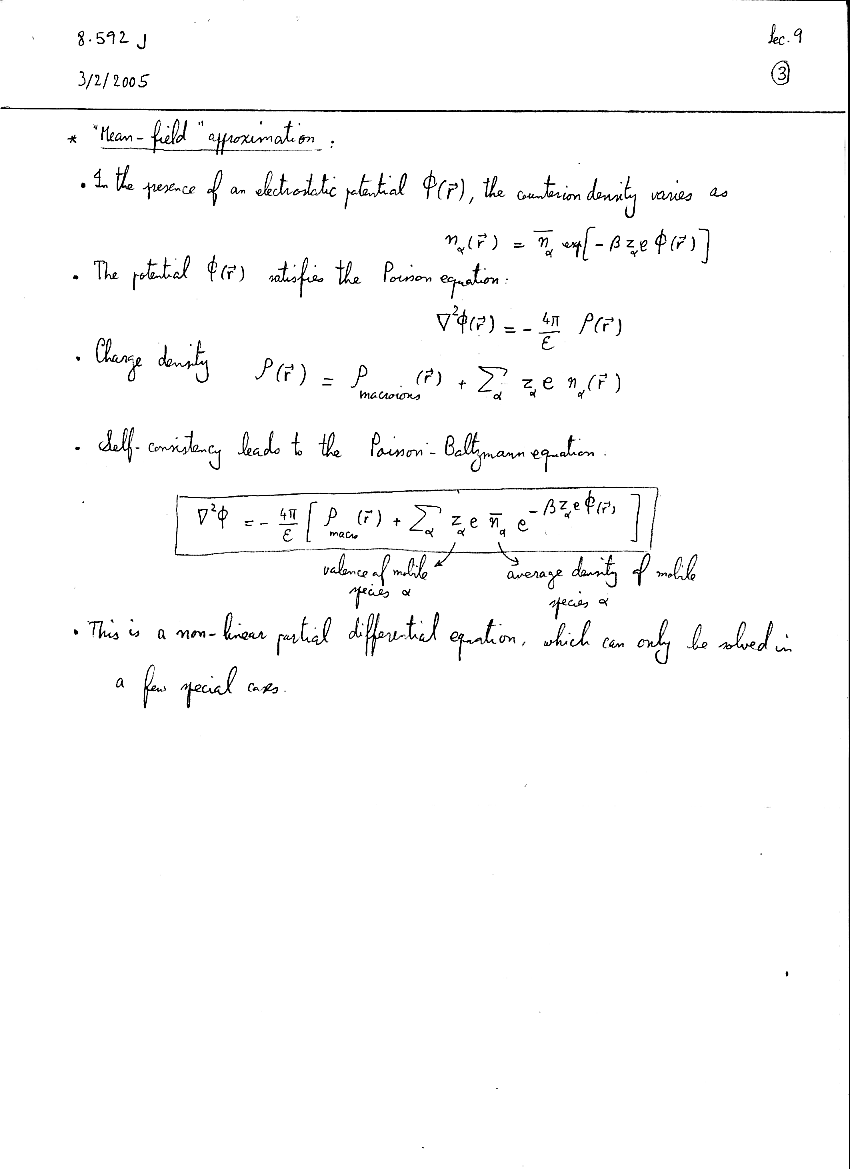 8.592 J
Lec. 9
3/2/2005
③
* "Mean-field" approximation :
• In the presence of an electrostatic potential Φ(r⃗), the counterion density varies as
n_α(r⃗) = n̅_α exp[-β z_α e Φ(r⃗)]
• The potential Φ(r⃗) satisfies the Poisson equation:
∇²Φ(r⃗) = - 4π/ε ρ(r⃗)
• Charge density ρ(r⃗) = ρ_macroions (r⃗) + Σ_α z_α e n_α(r⃗)
• Self-consistency leads to the Poisson-Boltzmann equation.
∇²Φ = - 4π/ε [ ρ_macro (r⃗) + Σ_α z_α e n̅_α e^{-β z_α e Φ(r⃗)} ]
valence of mobile species α
average density of mobile species α
• This is a non-linear partial differential equation, which can only be solved in
a few special cases.